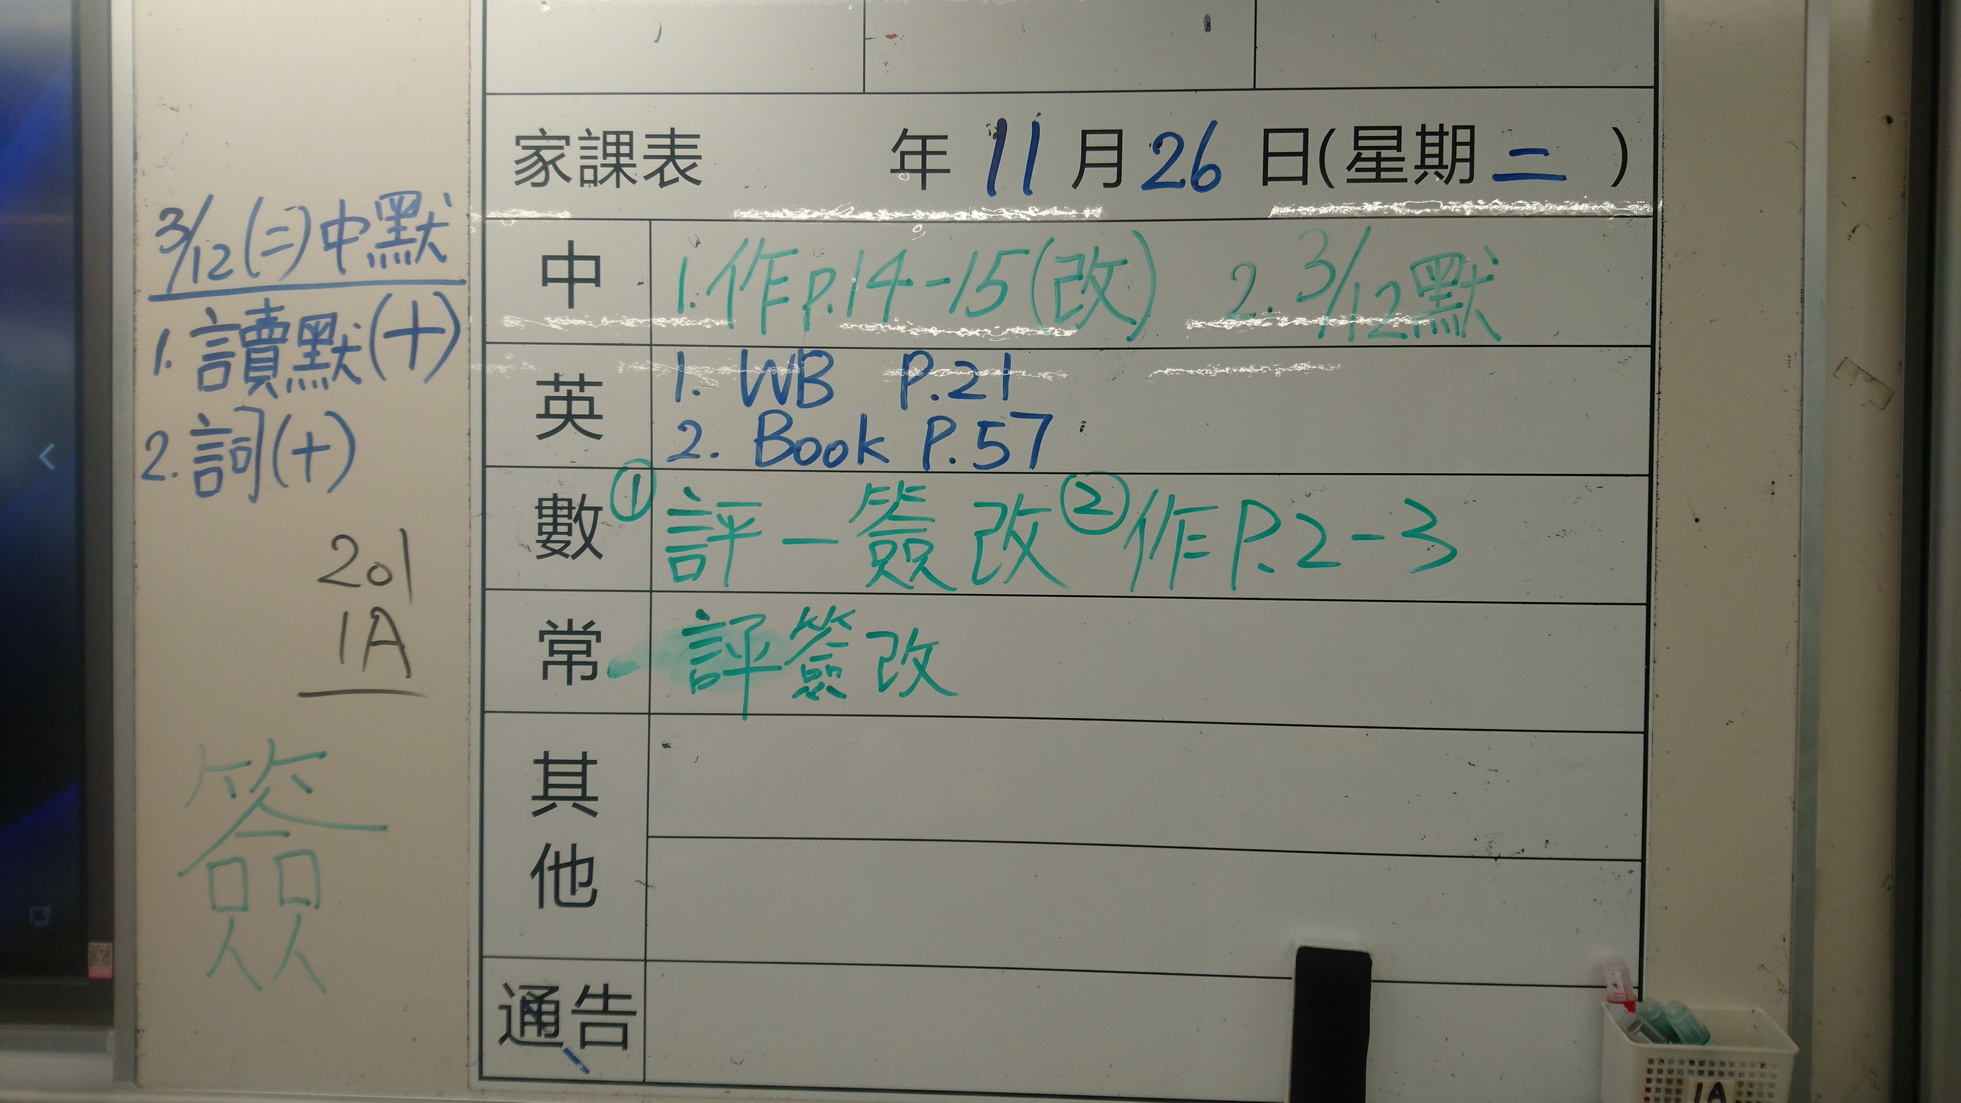 3/12(二)中默
1. 讀默(十)
2. 詞(十)
201
1A
簽
家課表 年 11 月 26 日(星期 二 )
中 1.作p.14-15(改) 2. 3/12默
英 1. WB P.21
2. Book P.57
數 ①評一簽改 ②作P.2-3
常 評簽改
其他
通告
1A